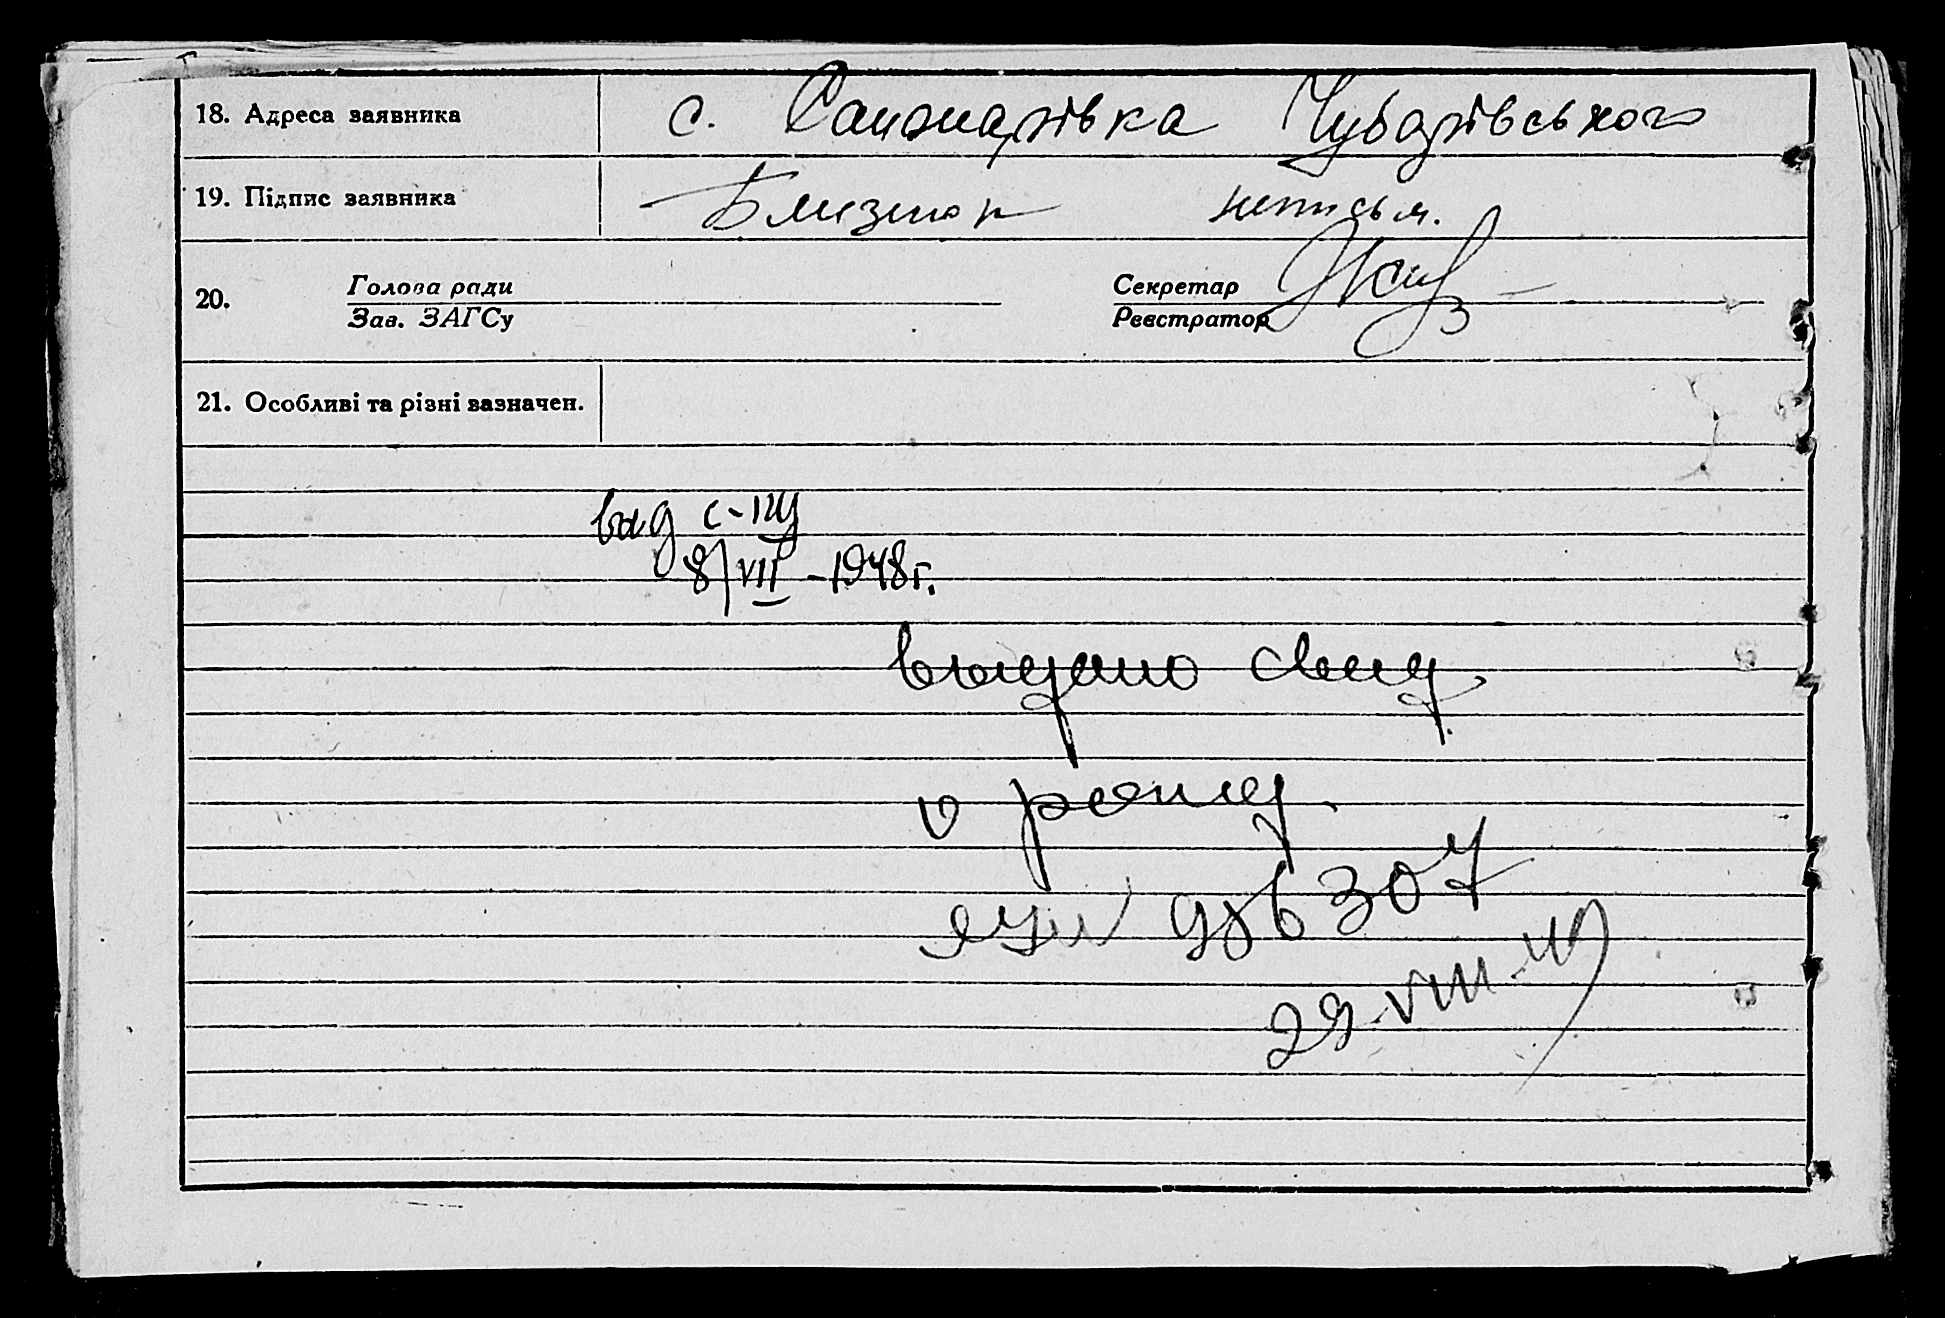 18. Адреса заявника с. Гончарівка Чубарівського
19. Підпис заявника Близнюк неписьм.
20. Голова ради Секретар
Зав. ЗАГСу Реєстратор
21. Особливі та різні зазначен.
выд с-ву
8/VII - 1948г.
выдано свид.
о рожд.
986307
29 VIII